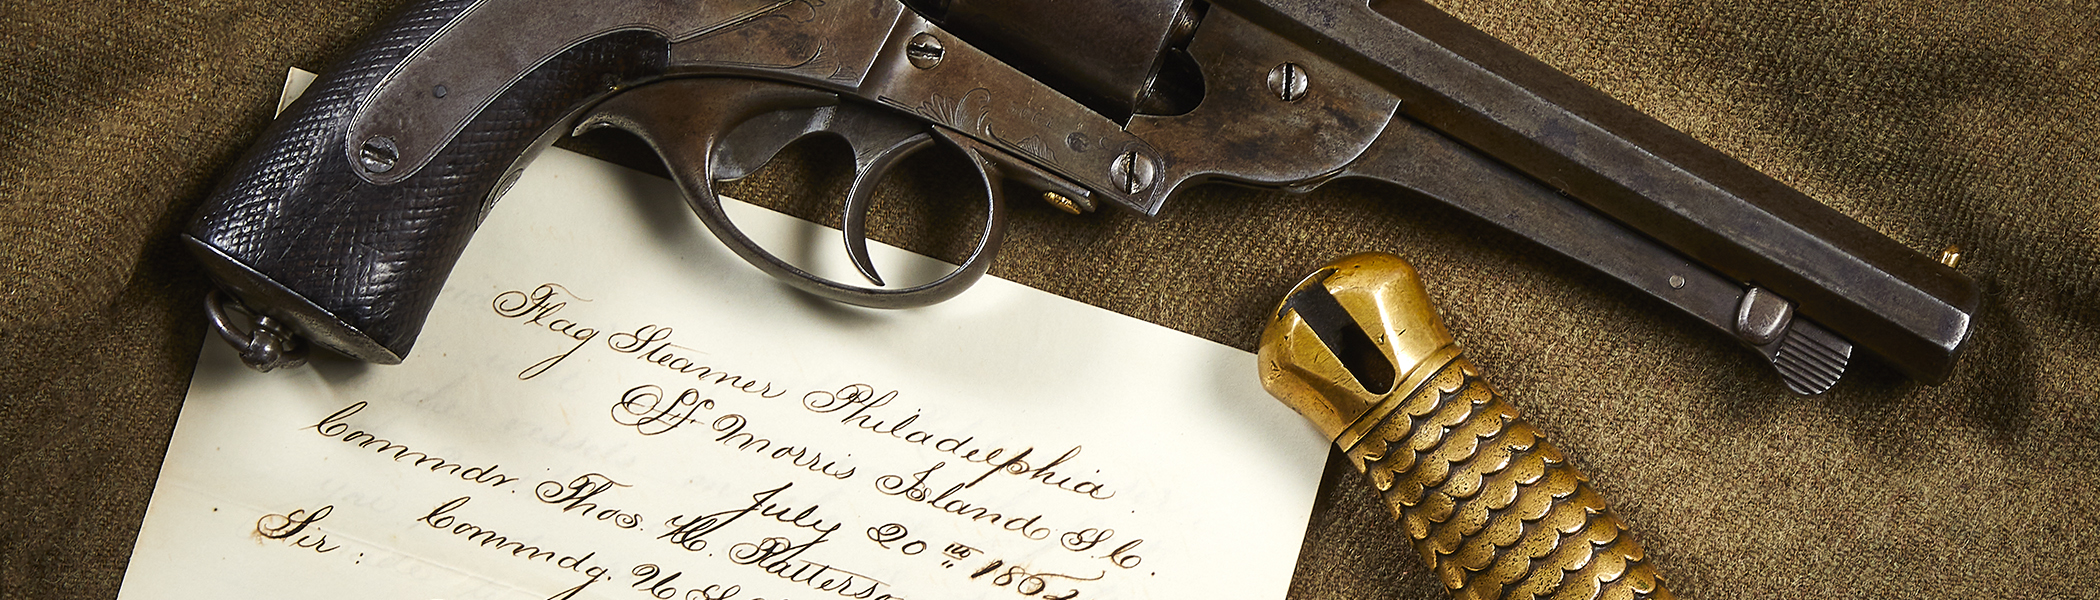 Flag Steamer Philadelphia
Off Morris Island S.C.
July 20th 186
Commdr. Thos. H. Patterso
Commdg. U.S.
Sir :